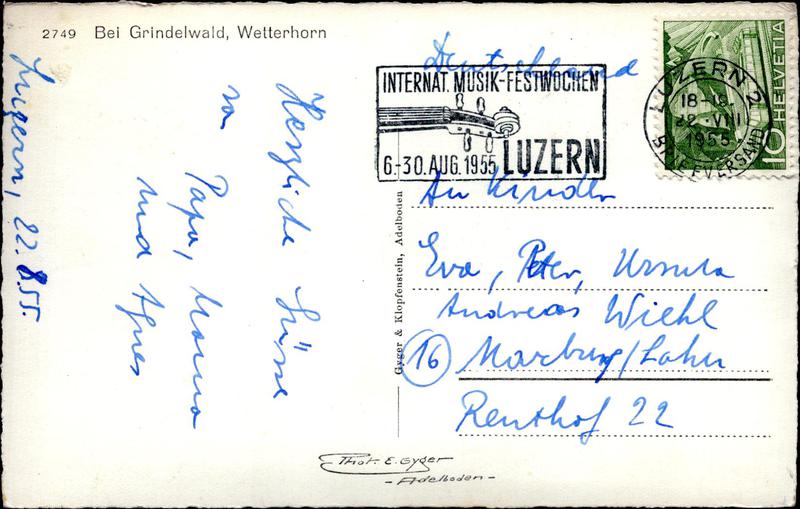 2749 Bei Grindelwald, Wetterhorn
Luzern, 22.8.55.
Herzliche Grüsse
von
Papa, Mama
und Agnes
Deutschland
INTERNAT. MUSIK-FESTWOCHEN
6.-30. AUG. 1955 LUZERN
LUZERN 2
18-19
22. VIII
1955
BRIEFVERSAND
10 HELVETIA
An Kinder
Eva, Peter, Ursula
Andreas Wiehl
16 Marburg/Lahn
Renthof 22
Gyger & Klopfenstein, Adelboden
Phot. E. Gyger
- Adelboden -